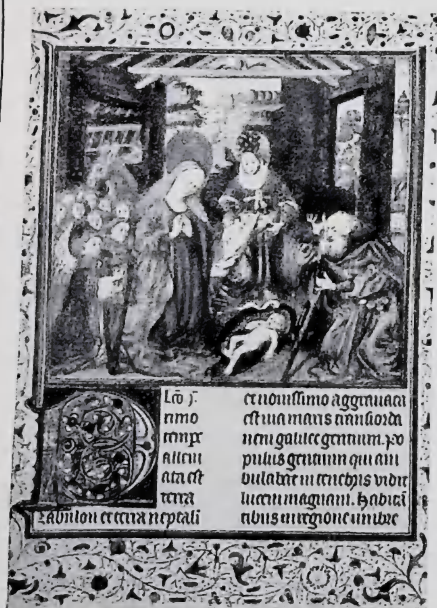 Lco j.
rimo
tempe
alleui
ata est
terra
zabulon et terra neptali
et nouissimo aggrauata
est uia maris transiorda
nem galilee gentium. po
pulus gentium qui am
bulabat in tenebris uidit
lucem magnam. habitā
tibus in regione umbre